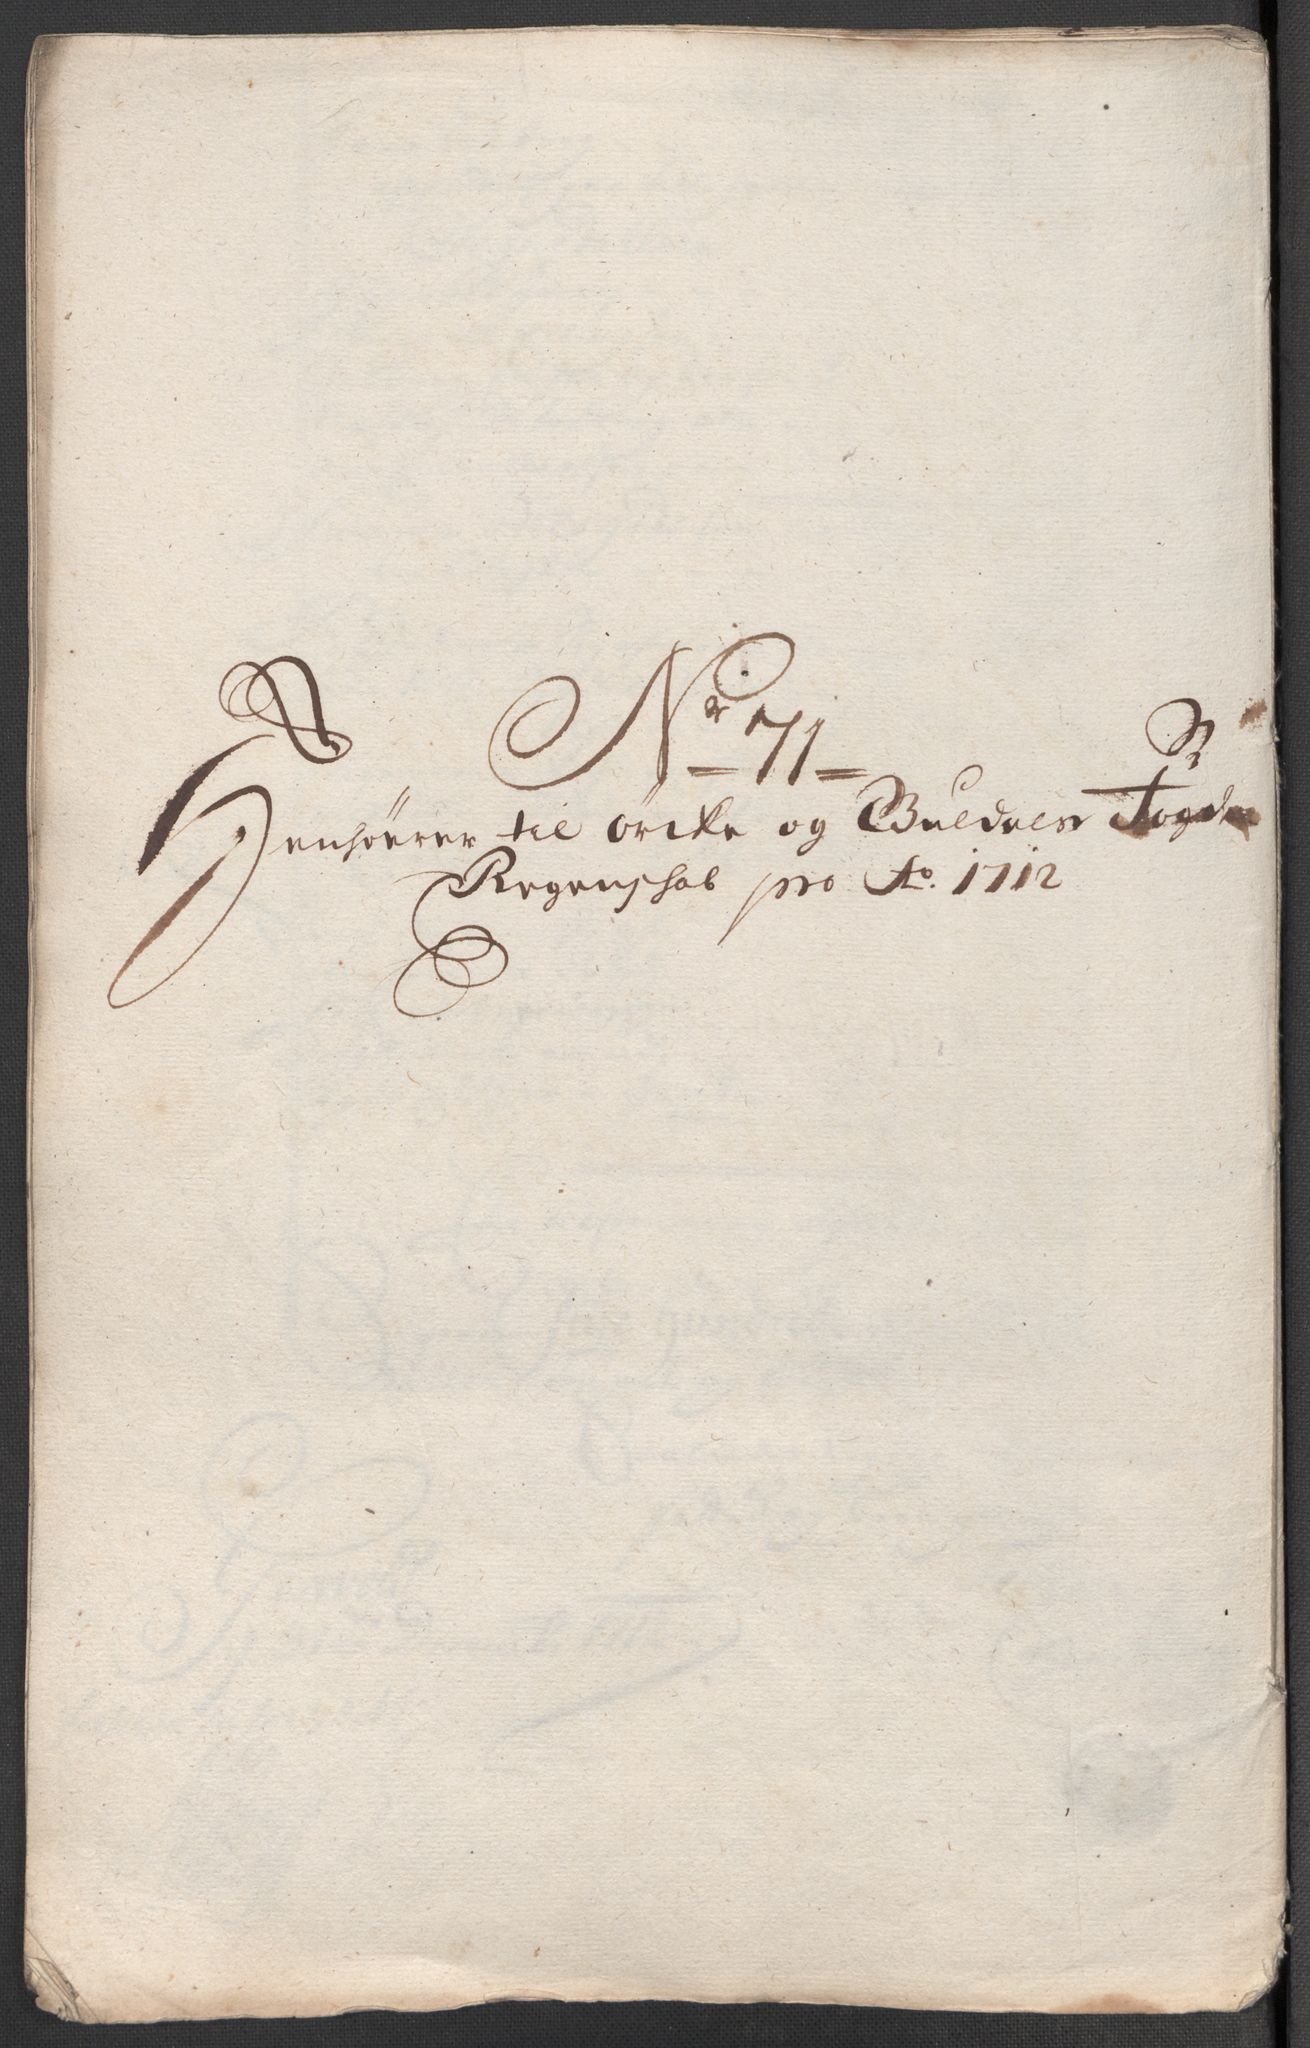 Nr 71
Henhörer til örcke og Guldals Fogderi
Regenskab pro Ao. 1712